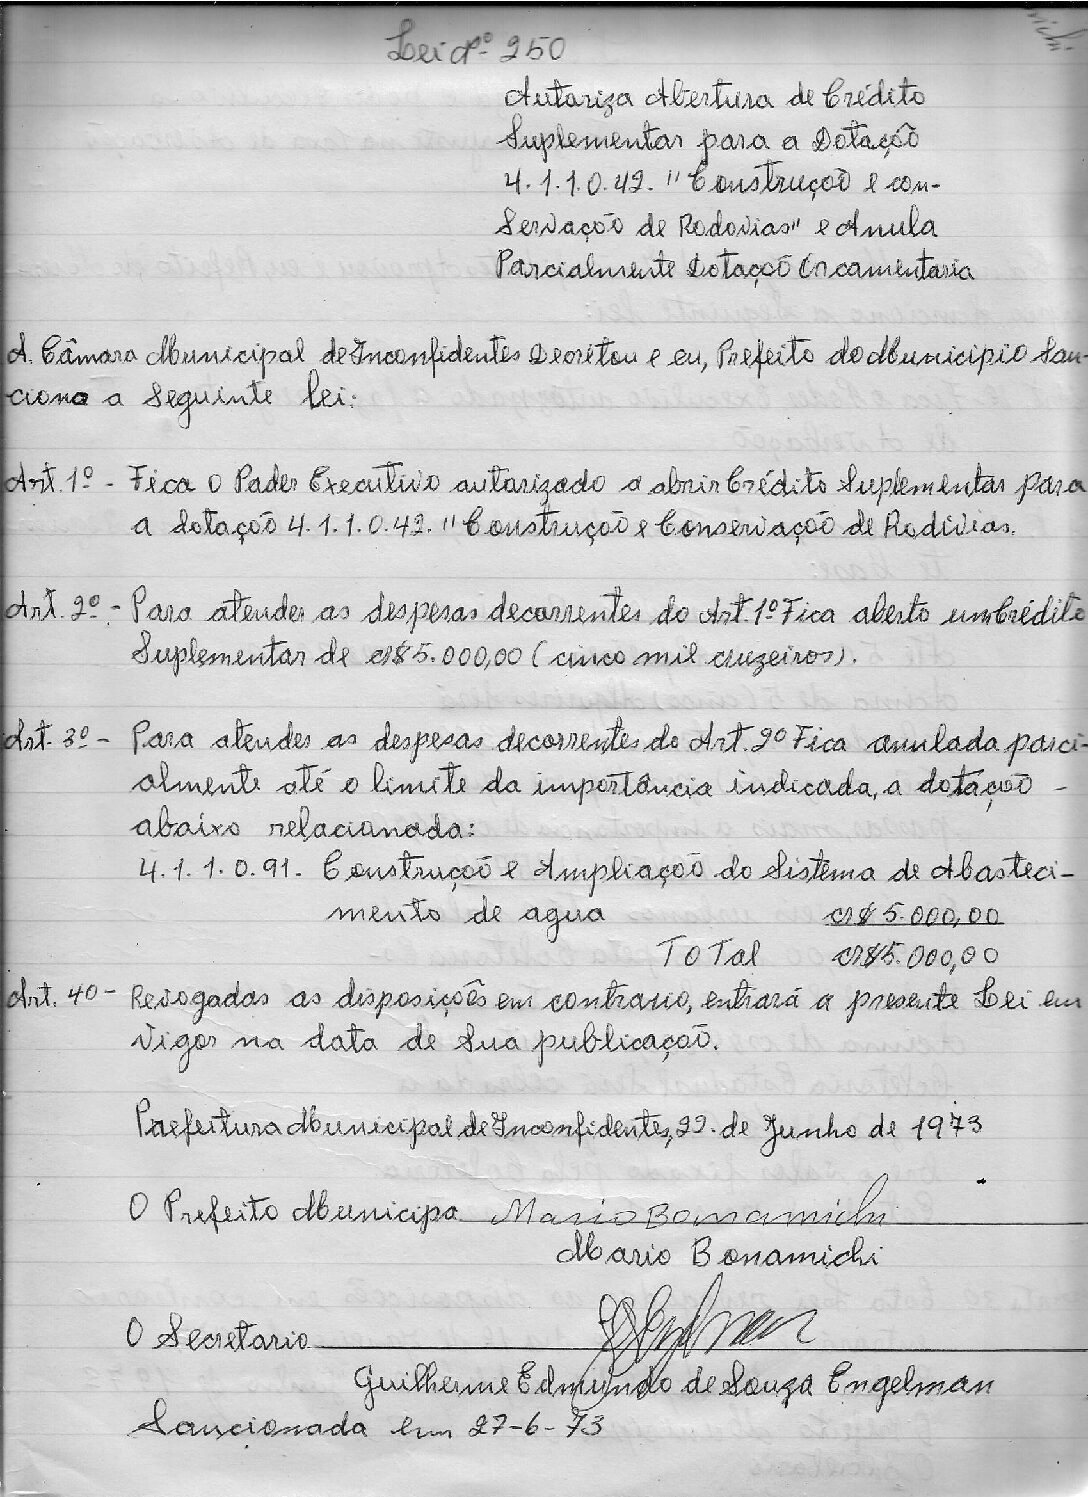 Lei nº 250
Autariza Abertura de Crédito
Suplementar para a Dotaçõo
4.1.1.0.42. "Construçõo e con-
servaçõo de Rodovias" e Anula
Parcialmente Dotaçõo Orcamentaria
A. Câmara Municipal de Inconfidentes Decretou e eu, Prefeito do Municipio San-
ciono a seguinte lei:
Art. 1º - Fica o Poder Executivo autorizado a abrir Crédito Suplementar para
a dotaçõo 4.1.1.0.42. "Construçõo e Conservaçõo de Rodivias.
Art. 2º - Para atender as despesas decorrentes do Art. 1º Fica aberto um Crédito
Suplementar de CR$5.000,00 (cinco mil cruzeiros).
Art. 3º - Para atender as despesas decorrentes do Art. 2º Fica anulada parci-
almente até o limite da importância indicada, a dotaçõo -
abaixo relacionada:
4.1.1.0.91. Construçõo e Ampliaçõo do Sistema de Abasteci-
mento de agua CR$ 5.000,00
TOTal CR$5.000,00
Art. 4º - Revogadas as disposições em contrario, entrará a presente Lei em
vigor na data de sua publicaçõo.
Prefeitura Municipal de Inconfidentes, 22. de Junho de 1973
O Prefeito Municipa Mario Bonamichi
Mario Bonamichi
O Secretario Engelman
Guilherme Edmundo de Souza Engelman
Sancionada em 27-6-73